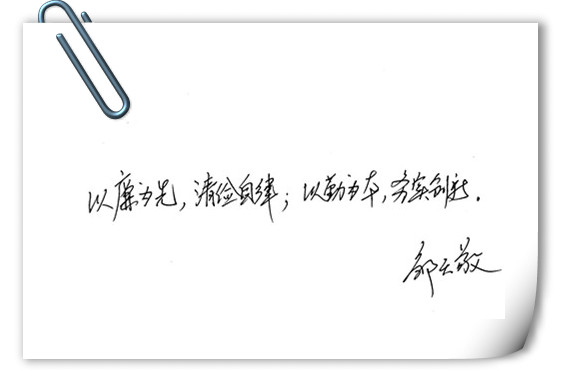 以廉为先，清俭自律；以勤为本，务实创新.
邹云敬